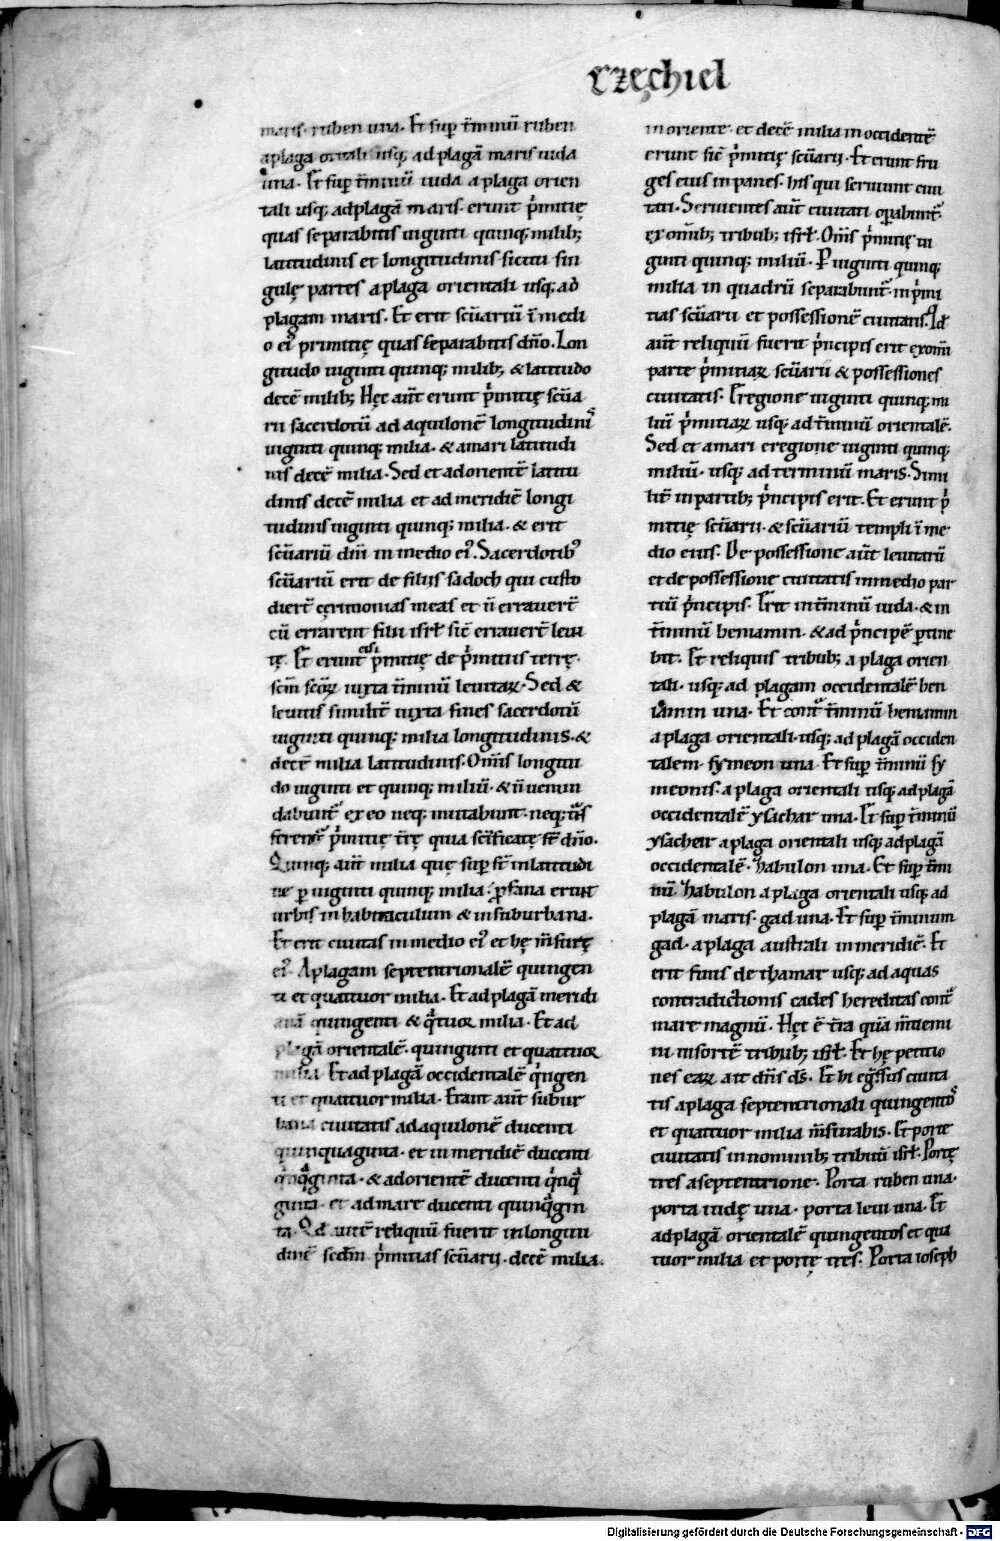 Ezechiel
maris. ruben una. Et sup t̄minū ruben
a plaga orītali usq; ad plagā maris iuda
una. Et sup t̄minū iuda a plaga orien
tali usq; ad plagā maris. erunt p̍mitię
quas separabitis uiginti quinq; milib;
latitudinis et longitudinis sicuti sin
gulę partes a plaga orientali usq; ad
plagam maris. Et erit scūariū ī medi
o ei᾽ primitię quas separabitis dño. Lon
gitudo uiginti quinq; milib; & latitudo
decē milib; Hęc aut̄ erunt p̍mitię scūa
rii sacerdotū ad aquilonē longitudini᾽
uiginti quinq; milia. & a mari latitudi
nis decē milia. Sed et ad orientē latitu
dinis decē milia et ad meridiē longi
tudinis uiginti quinq; milia. & erit
scūariū dñi in medio ei᾽. Sacerdotib᾽
scūariū erit de filiis sadoch qui custo
dier̄t cerimonias meas et ñ errauer̄t
cū errarent filii isrł sic̄ errauer̄t leui
tę. Et erunt eis p̍mitię de p̍mitiis terrę.
scm̄ scōꝝ iuxta t̄minū leuitaꝝ. Sed &
leuitis similit̄ iuxta fines sacerdotū
uiginti quinq; milia longitudinis. &
decē milia latitudinis. Om̄is longitu
do uiginti et quinq; miliū. & ñ uenun
dabunt᾽ ex eo neq; mutabunt. neq; t̄ns
ferent᾽ p̍mitię t̄rę quia sc̄ificatę st̄ dño.
Quinq; aut̄ milia quę sup st̄ in latitudi
ne ꝑ uiginti quinq; milia. ꝓfana erunt
urbis in habitaculum & in suburbana.
Et erit ciuitas in medio ei᾽ et hę m̄surę
ei᾽. A plagam septentrionalē quingen
ti et quattuor milia. Et ad plagā meridi
anā quingenti & qͣtuor milia. Et ad
plagā orientalē. quinginti et quattuor
milia. Et ad plagā occidentalē q̍ngen
ti et quattuor milia. Erant aut̄ subur
bana ciuitatis ad aquilonē ducenti
quinquaginta. et in meridiē ducenti
q̍nqͣginta. & ad orientē ducenti q̍nqͣ
ginta. et ad mare ducenti quinqͣgin
ta. Qd̄ autē reliquū fuerit in longitu
dinē scdm̄ p̍mitias scūarii. decē milia.
in oriente. et decē milia in occidentē
erunt sic̄ p̍mitię scūarii. Et erunt fru
ges eius in panes. his qui seruiunt ciui
tati. Seruientes aut̄ ciuitati opabunt᾽
ex omīb; tribub; isrł. Om̄s p̍mitię ui
ginti quinq; miliū. Ꝑ uiginti quinq;
milia in quadrū separabunt᾽. in p̍mi
tias scūarii et possessionē ciuitatis. Qd̄
aut̄ reliquū fuerit p̍ncipis erit ex omī
parte p̍mitiaꝝ scūarii & possessiones
ciuitatis. E regione uiginti quinq; mi
liū p̍mitiaꝝ usq; ad t̄minū orientalē.
Sed et a mari e regione uiginti quinq;
miliū. usq; ad terminū maris. Simi
lit̄ in partib; p̍ncipis erit. Et erunt p̍
mitię scūarii. & scūariū templi ī me
dio eius. De possessione aut̄ leuitarū
et de possessione ciuitatis in medio par
tiū p̍ncipis. Erit in t̄minū iuda. & in
t̄minū beniamin. & ad p̍ncipē ptine
bit. Et reliquis tribub; a plaga orien
tali. usq; ad plagam occidentalē ben
iamin una. Et contͣ t̄minū beniamin
a plaga orientali. usq; ad plagā occiden
talem symeon una. Et sup t̄minū sy
meonis. a plaga orientali usq; ad plagā
occidentalē ysachar una. Et sup t̄minū
ysachar a plaga orientali usq; ad plagā
occidentalē. zabulon una. Et sup t̄mi
nū zabulon a plaga orientali usq; ad
plagā maris. gad una. Et sup t̄minum
gad. a plaga australi in meridiē. Et
erit finis de thamar usq; ad aquas
contradictionis cades hereditas contͣ
mare magnū. Hęc ē t̄ra quā mittemi
ni in sortē tribub; isrł. Et hę petitio
nes eaꝝ ait dñs ds̄. Et hi eg̍ssus ciuita
tis a plaga septentrionali quingentos
et quattuor milia m̄surabis. Et porte
ciuitatis in nominib; tribuū isrł. Portę
tres a septentrione. Porta ruben una.
porta iudę una. porta leui una. Et
ad plagā orientalē quingentos et qua
tuor milia et portę tres. Porta ioseph
Digitalisierung gefördert durch die Deutsche Forschungsgemeinschaft - DFG